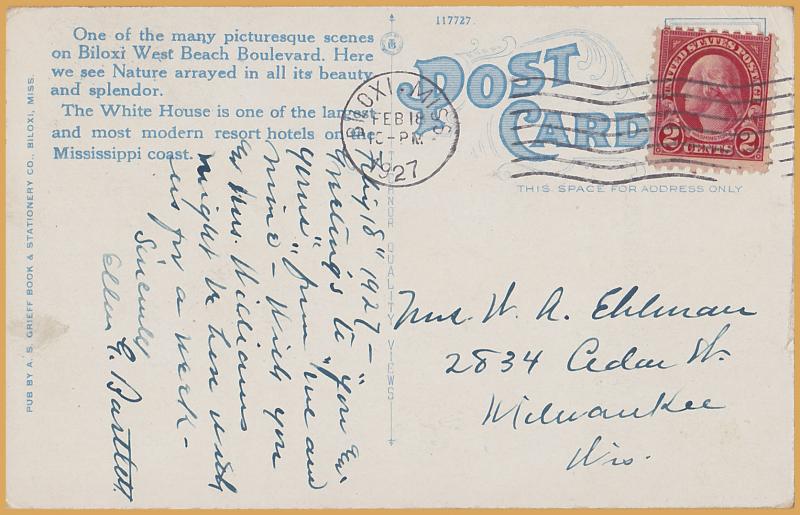 One of the many picturesque scenes
on Biloxi West Beach Boulevard. Here
we see Nature arrayed in all its beauty
and splendor.
The White House is one of the largest
and most modern resort hotels on the
Mississippi coast.
117727
POST
CARD
THIS SPACE FOR ADDRESS ONLY
BILOXI, MISS.
FEB 18
PM
1927
UNITED STATES POSTAGE
2 CENTS 2
PUB BY A. S. GRIEFF BOOK & STATIONERY CO., BILOXI, MISS.
QUALITY VIEWS
18" 1927 -
Greetings to "you &
yours" from me and
mine - Wish you
& Mrs. Williams
might be here with
us for a week -
Sincerely
Ellen G. Bartlett.
Mrs. W. A. Ehlman
2834 Cedar St.
Milwaukee
Wis.